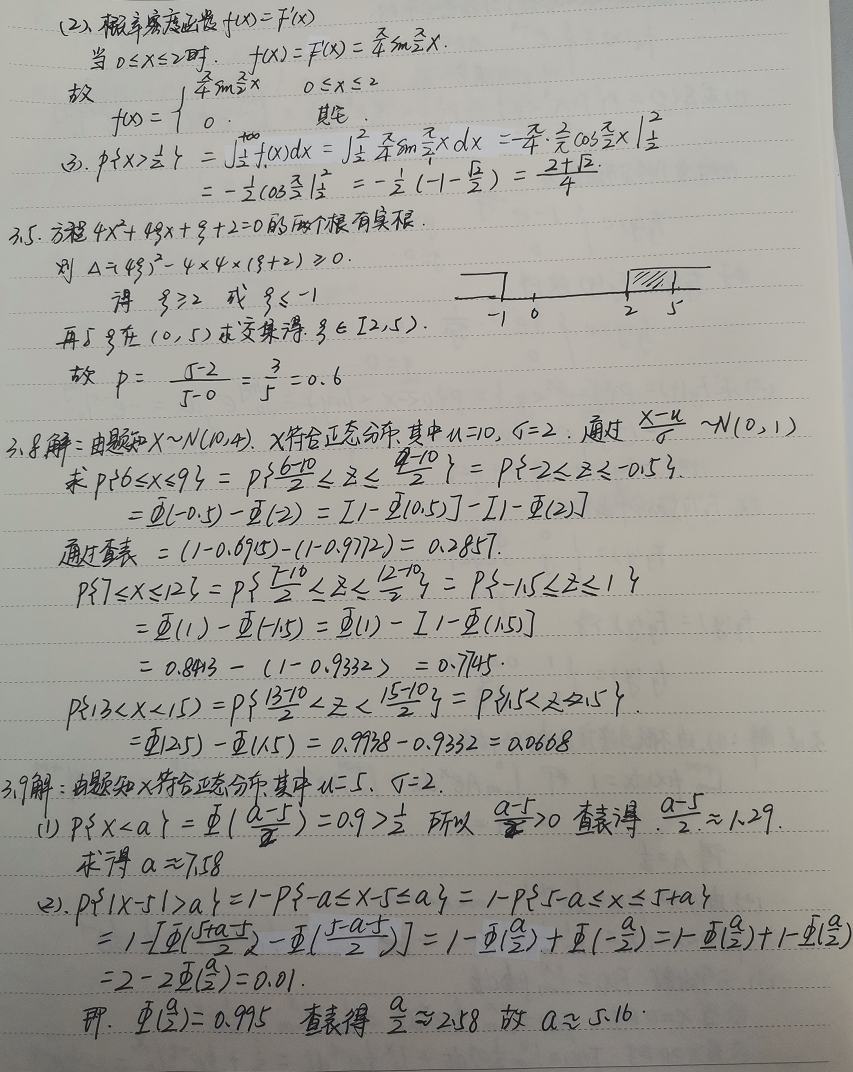 (2). 概率密度函数 f(x)=F'(x)
当 0≤x≤2时. f(x)=F'(x)=π/4 sin π/2 x.
故 f(x)={ π/4 sin π/2 x 0≤x≤2
0. 其它.
(3). P{x>1/2} = ∫_{1/2}^{+∞} f(x)dx = ∫_{1/2}^{2} π/4 sin π/2 x dx = -π/4 · 2/π cos π/2 x |_{1/2}^{2}
= -1/2 cos π/2 |_{1/2}^{2} = -1/2 (-1-√2/2) = (2+√2)/4.
3.5. 方程 4x²+4ξx+ξ+2=0 的两个根有实根.
则 Δ=(4ξ)²-4×4×(ξ+2)≥0.
得 ξ≥2 或 ξ≤-1
-1 0 2 5
再与 ξ在 (0,5) 求交集得 ξ∈[2,5).
故 P= (5-2)/(5-0) = 3/5 = 0.6
3.8 解: 由题知 X~N(10,4). X符合正态分布. 其中 u=10, σ=2. 通过 (x-u)/σ ~N(0,1)
求 P{6≤x≤9} = P{(6-10)/2 ≤ z ≤ (9-10)/2} = P{-2≤z≤-0.5}.
= Φ(-0.5)-Φ(2) = [1-Φ(0.5)]-[1-Φ(2)]
通过查表 = (1-0.6915)-(1-0.9772) = 0.2857.
P{7≤x≤12} = P{(7-10)/2 ≤ z ≤ (12-10)/2} = P{-1.5≤z≤1}
= Φ(1)-Φ(-1.5) = Φ(1)-[1-Φ(1.5)]
= 0.8413-(1-0.9332) = 0.7745.
P{13<x<15} = P{(13-10)/2 < z < (15-10)/2} = P{1.5<z<2.5}.
= Φ(2.5)-Φ(1.5) = 0.9938-0.9332 = 0.0668
3.9 解: 由题知 x符合正态分布 其中 u=5. σ=2.
(1) P{x<a} = Φ((a-5)/2) = 0.9 > 1/2 所以 (a-5)/2 >0 查表得. (a-5)/2 ≈1.29.
求得 a≈7.58
(2). P{|x-5|>a} = 1-P{-a≤x-5≤a} = 1-P{5-a≤x≤5+a}
= 1-[Φ((5+a-5)/2)-Φ((5-a-5)/2)] = 1-Φ(a/2)+Φ(-a/2) = 1-Φ(a/2)+1-Φ(a/2)
= 2-2Φ(a/2) = 0.01.
即. Φ(a/2) = 0.995 查表得 a/2 ≈2.58 故 a≈5.16.